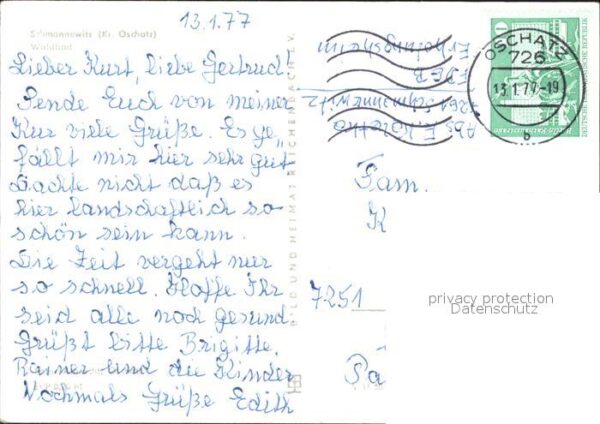 13.1.77
Schmannewitz (Kr. Oschatz)
Waldbad
Lieber Kurt, liebe Gertrud
Sende Euch von meiner
Kur viele Grüße. Es ge,
fällt mir hier sehr gut
Dachte nicht daß es
hier landschaftlich so
schön sein kann.
Die Zeit vergeht nur
so schnell. Hoffe Ihr
seid alle noch gesund
Grüßt bitte Brigitte,
Rainer und die Kinder
Nochmals Grüße Edith
BILD UND HEIMAT REICHENBACH I. V.
Abs E.
7261 Schmannewitz
Erholungsheim
OSCHATZ
726
13.1.77-19
b
10
Fam.
K
7251
Pa
privacy protection
Datenschutz